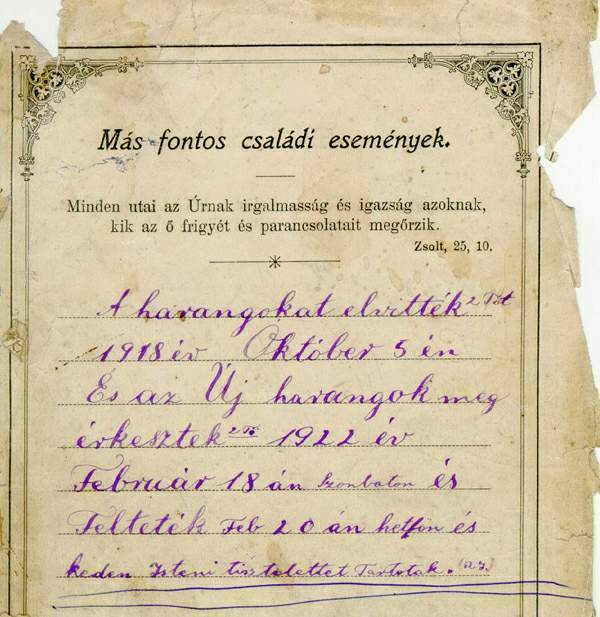 Más fontos családi események.
Minden utai az Úrnak irgalmasság és igazság azoknak,
kik az ő frigyét és parancsolatait megőrzik.
Zsolt, 25, 10.
A harangokat elvitték 2
1918 év Október 5 én
És az Új harangok meg
érkesztek 1922 év
Február 18 án szonbaton és
Felteték Feb 20 án hetfőn és
keden Isteni tisstelettet Tartotak.